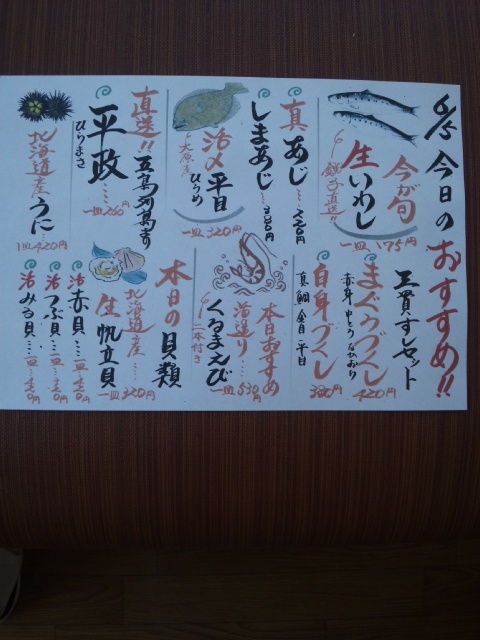 6/5 今日のおすすめ!!
今が旬
生いわし
銚子直送!!
一皿175円
真あじ
しまあじ
活〆平目
ひらめ
大原産
一皿320円
直送!!五島列島より
平政
ひらまさ
一皿260円
北海道産
うに
1皿420円
三貫すしセット
まぐろづくし
420円
白身づくし
真鯛 金目 平目
本日おすすめ
活造り
くるまえび
二本付き
一皿530円
本日の貝類
北海道産
生帆立貝
一皿320円
活赤貝
活つぶ貝
活みる貝